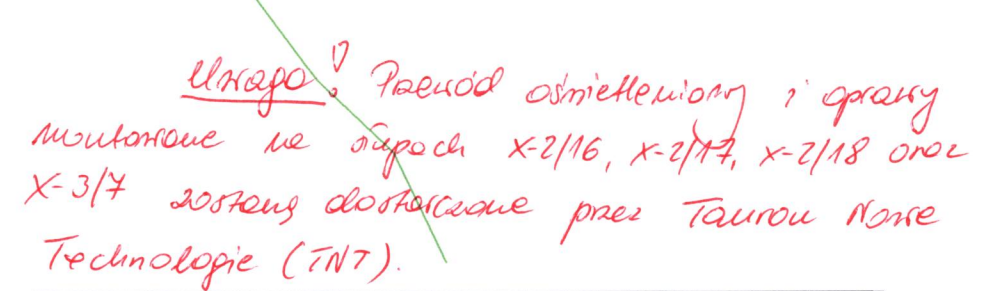 Uwaga! Przewód oświetleniowy i oprawy
montowane na słupach X-2/16, X-2/17, X-2/18 oraz
X-3/7 zostaną dostarczone przez Tauron Nowe
Technologie (TNT).